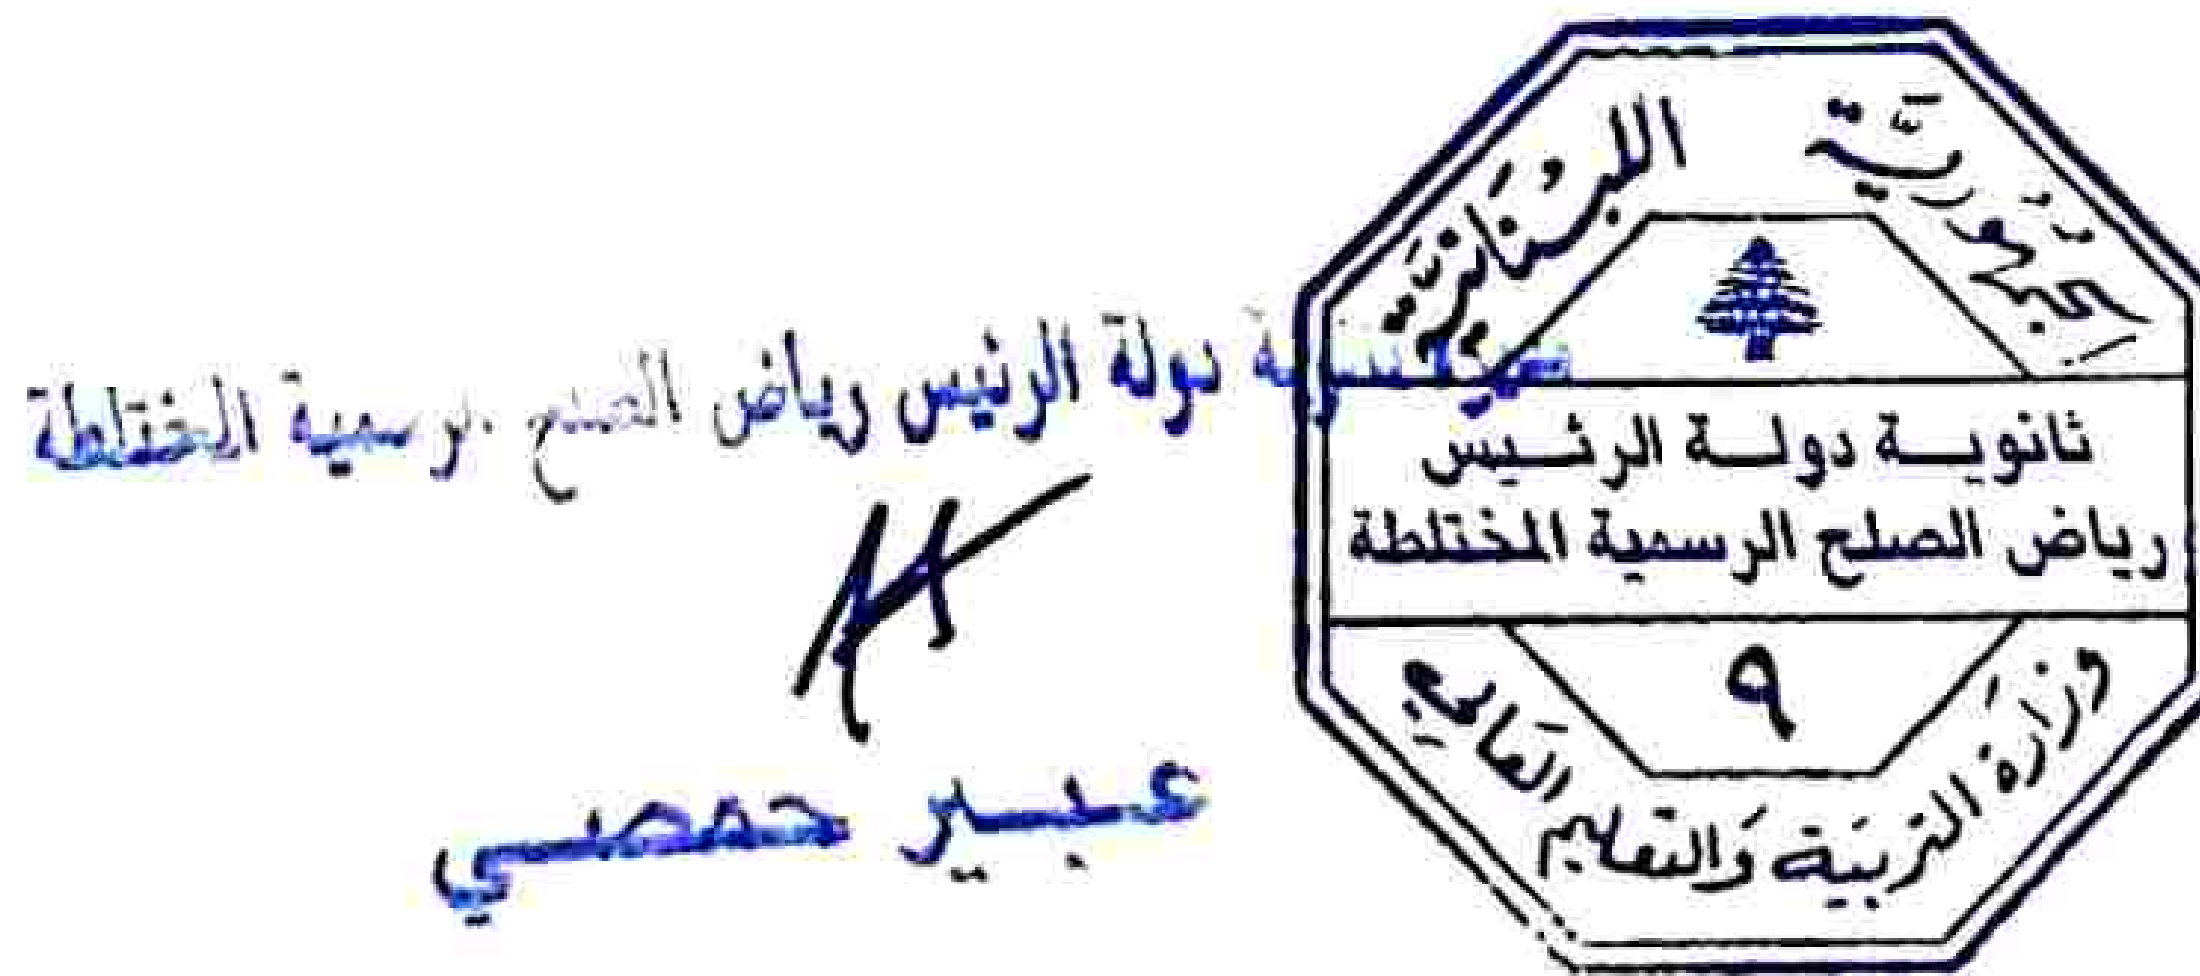 الجمهورية اللبنانية
ثانوية دولة الرئيس
رياض الصلح الرسمية المختلطة
٩
وزارة التربية والتعليم العالي
دولة الرئيس رياض الصلح الرسمية المختلطة
عبير حمصي